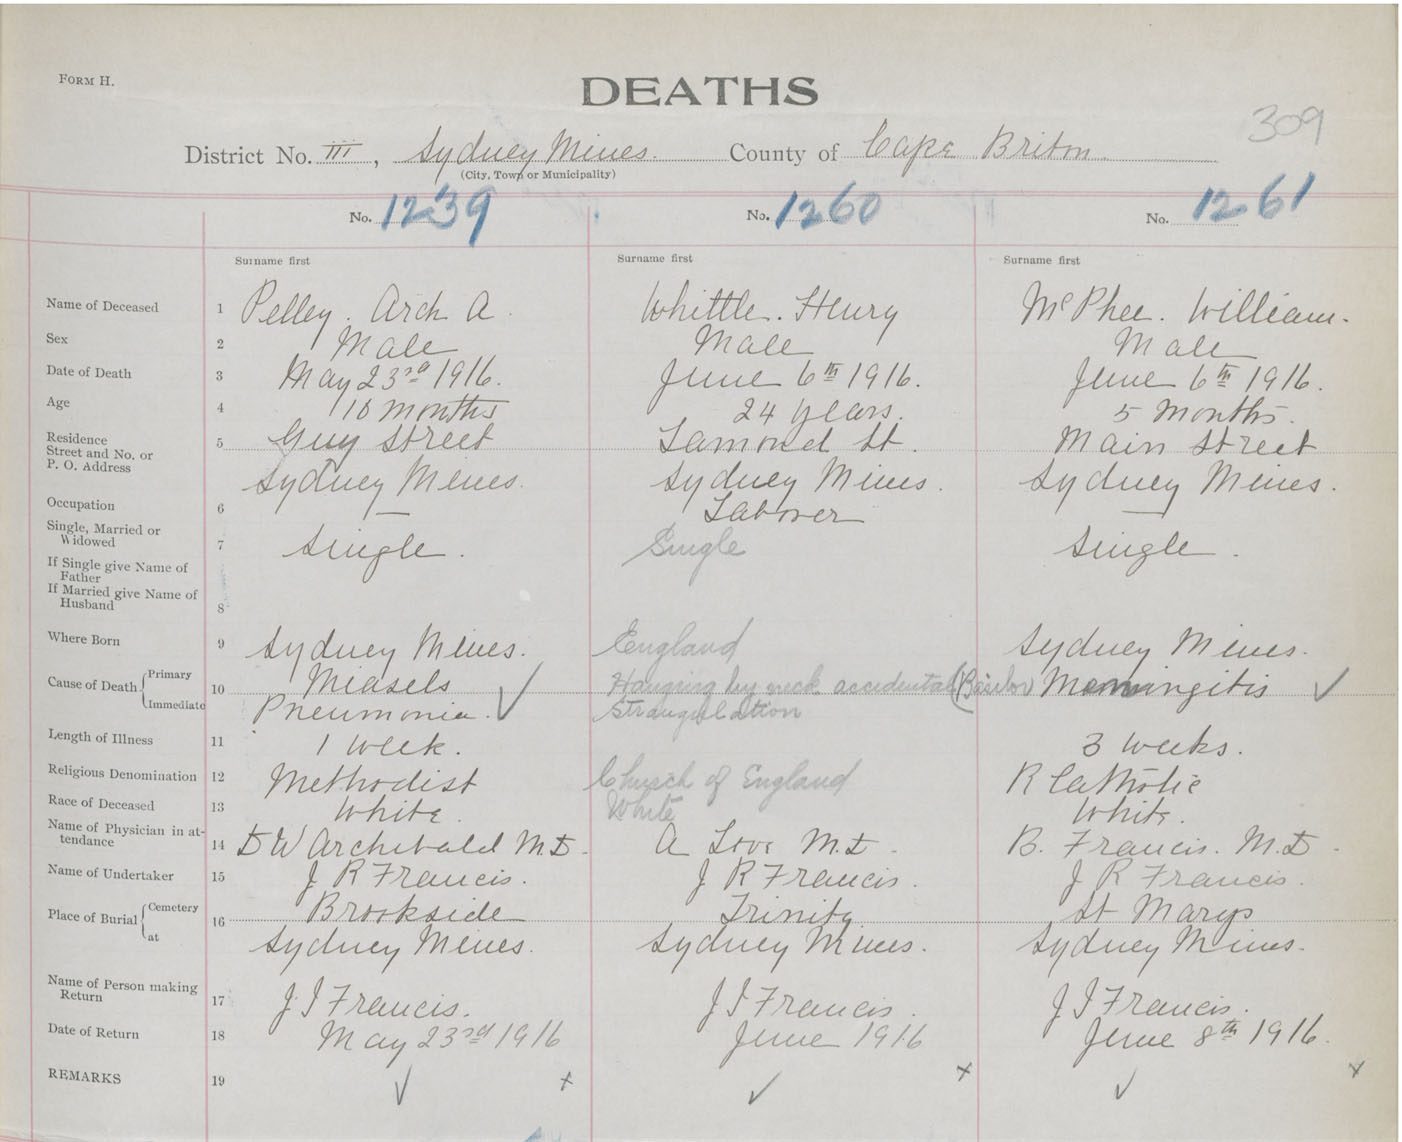 FORM H.
DEATHS
309
District No. III, Sydney Mines. County of Cape Briton
(City, Town or Municipality)
No. 1239 No. 1260 No. 1261
Surname first Surname first Surname first
Name of Deceased 1 Pelley. Arch A. Whittle. Henry McPhee. William.
Sex 2 Male Male Male
Date of Death 3 May 23rd 1916. June 6th 1916. June 6th 1916.
Age 4 10 months 24 years. 5 months.
Residence
Street and No. or 5 Guy Street Lamond St. Main Street
P. O. Address Sydney Mines. Sydney Mines. Sydney Mines.
Occupation 6 — Laborer —
Single, Married or
Widowed 7 Single. Single Single.
If Single give Name of
Father
If Married give Name of
Husband 8
Where Born 9 Sydney Mines. England Sydney Mines.
Cause of Death Primary 10 Measels Hanging by neck accidental (Basilar) Meningitis
Immediate Pneumonia. Strangulation
Length of Illness 11 1 week. 3 weeks.
Religious Denomination 12 Methodist Church of England R Catholic
Race of Deceased 13 White. White White.
Name of Physician in at-
tendance 14 D W Archibald M.D. A Love M.D. B. Francis. M.D.
Name of Undertaker 15 J R Francis. J R Francis. J R Francis.
Place of Burial Cemetery 16 Brookside Trinity St Marys
at Sydney Mines. Sydney Mines. Sydney Mines.
Name of Person making
Return 17 J J Francis. J J Francis. J J Francis.
Date of Return 18 May 23rd 1916 June 1916 June 8th 1916.
REMARKS 19